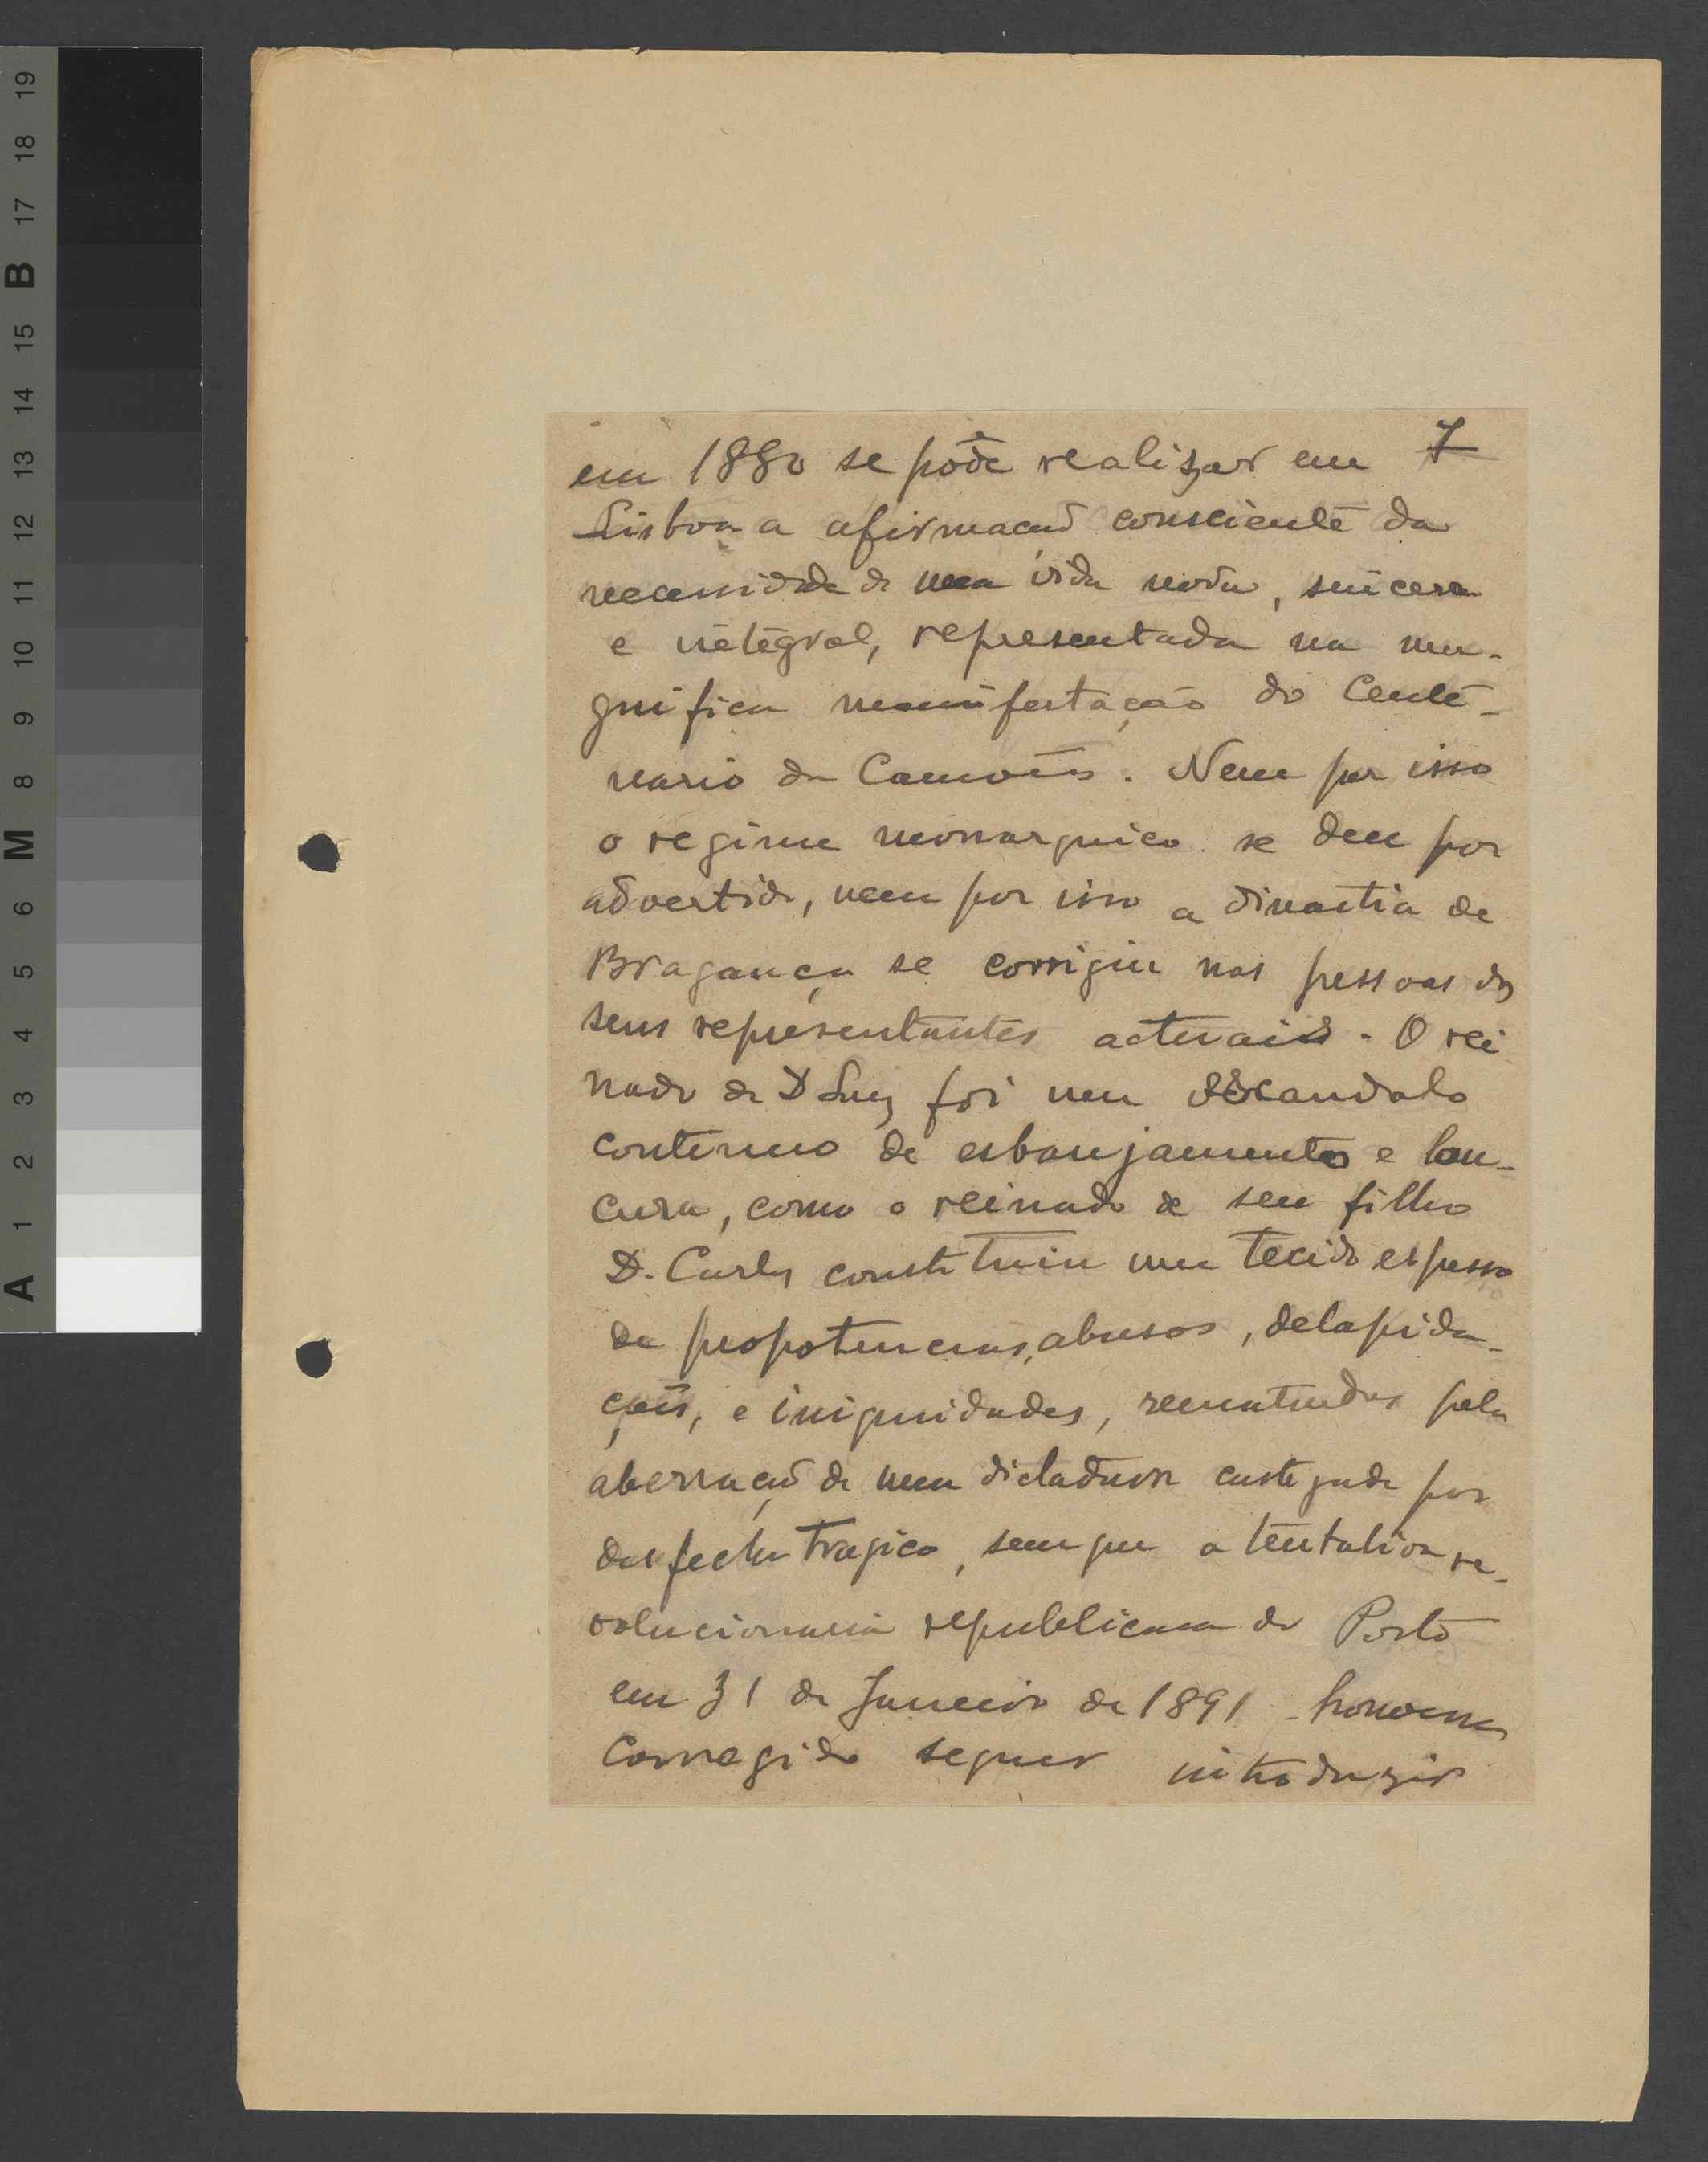 7
em 1880 se pôde realizar em
Lisboa a afirmação consciente da
necessidade de uma vida nova, sincera
e integral, representada na ma-
gnifica manifestação do Cente-
nario de Camões. Nem por isso
o regime monarquico se deu por
advertido, nem por isso a dinastia de
Bragança se corrigiu nas pessoas dos
seus representantes actuais. O rei
nado de D Luiz foi um escandalo
continuo de esbanjamentos e lou-
cura, como o reinado de seu filho
D. Carlos constituiu um tecido espesso
de prepotencias, abusos, delapida-
ções, e iniquidades, rematadas pela
aberração de uma dictadura castigada por
desfecho tragico, sem que a tentativa re-
volucionaria republicana do Porto
em 31 de Janeiro de 1891 houvesse
conseguido sequer introduzir
A 1 2 3 4 5 6 M 8 9 10 11 12 13 14 15 B 17 18 19